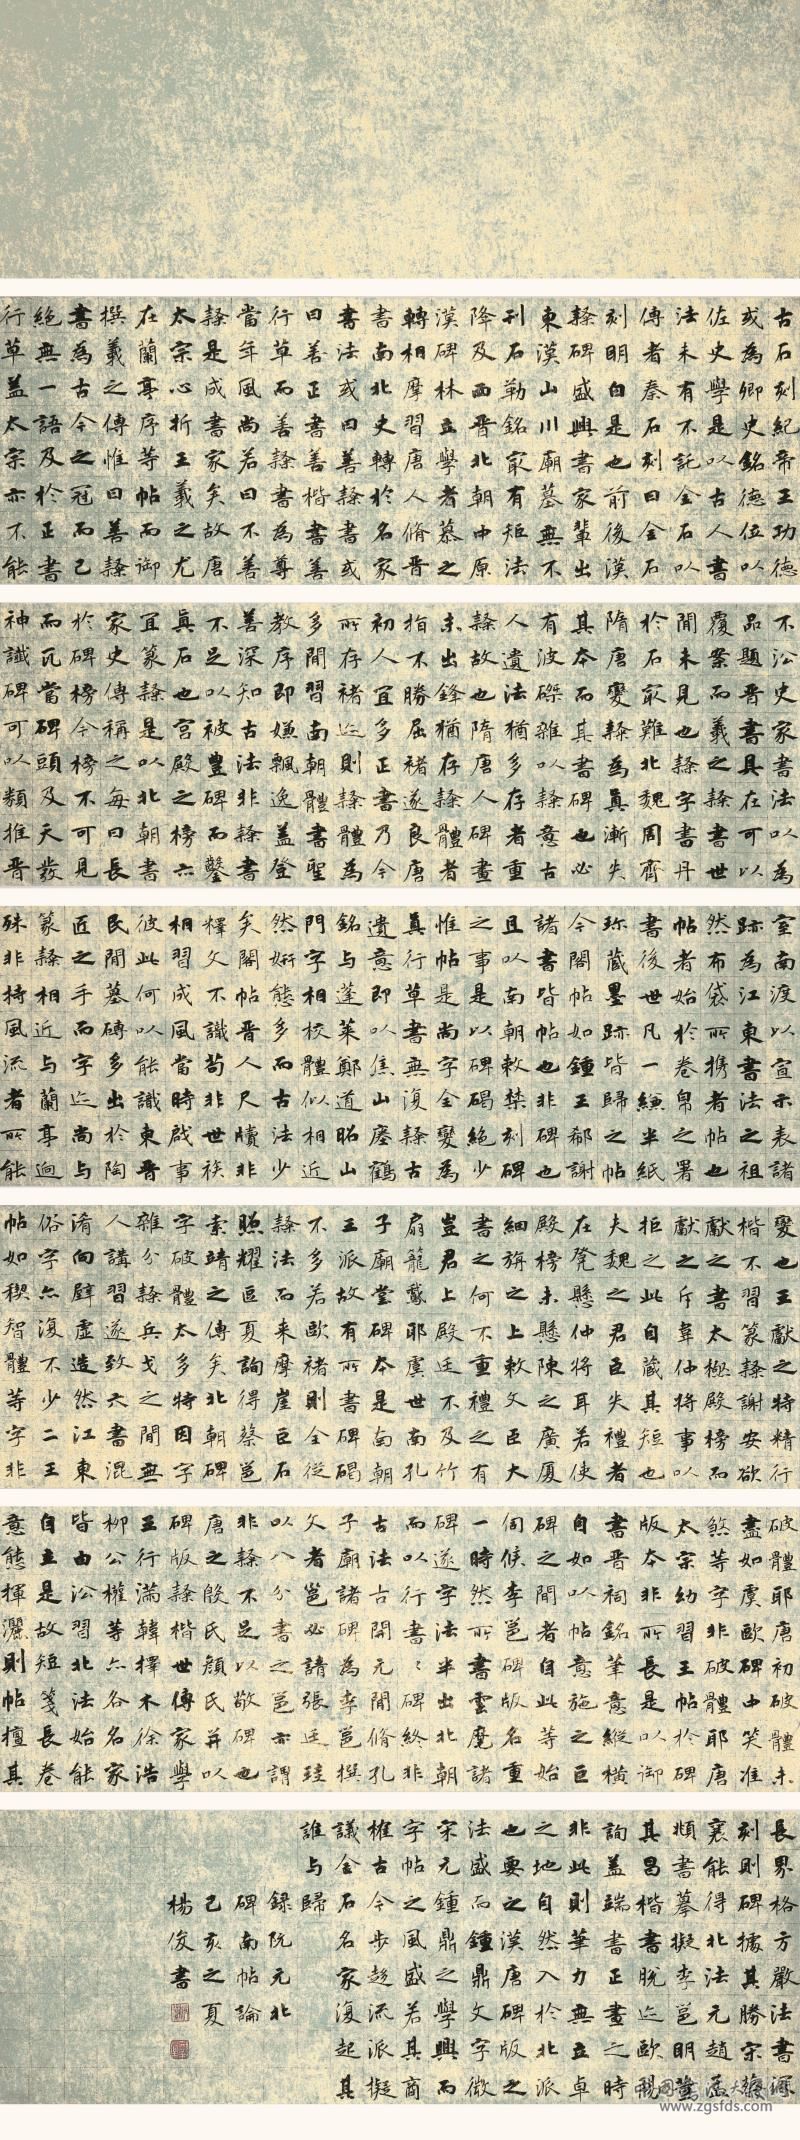 古石刻紀帝王功德
或為卿史銘德位以
佐史學是以古人書
法未有不託金石以
傳者秦石刻曰金石
刻明白是也前後漢
隸碑盛興書家輩出
東漢山川廟墓無不
刊石勒銘冣有矩法
降及西晉北朝中原
漢碑林立學者慕之
轉相摩習唐人脩晉
書南北史轉於名家
書法或曰善隸書或
曰善正書善楷書善
行草而善隸書為尊
當年風尚若曰不善
隸是成書家矣故唐
太宗心折王羲之尤
在蘭亭序等帖而御
撰羲之傳惟曰善隸
書為古今之冠而己
絶無一語及於正書
行草盖太宗亦不能
不沿史家書法以為
品題晉書具在可以
覆案而羲之隸書世
閒未見也隸字書丹
於石冣難北魏周齊
隋唐變隸為真漸失
其本而其書碑也必
有波磔雜以隸意古
人遺法猶多存者重
隸故也隋唐人碑畫
未出鋒猶存隸體者
指不勝屈褚遂良唐
初人宜多正書乃今
所存褚迹則隸體為
多閒習南朝體書聖
教序即嫌飄逸盖登
善深知古法非隸書
不足以被豐碑而鑿
真石也宮殿之榜亦
宜篆隸是以北朝書
家史傳稱之每曰長
於碑榜今榜不可見
而瓦當碑頭及天發
神讖碑可以類推晉
室南渡以宣示表諸
跡為江東書法之祖
然布袋所攜者帖也
帖者始於卷帛之署
書後世凡一縑半紙
珎藏墨跡皆歸之帖
今閣帖如鍾王郗謝
諸書皆帖也非碑也
且以南朝敕禁刻碑
之事是以碑碣絶少
惟帖是尚字全變為
真行草書無復隸古
遺意即以焦山瘞鶴
銘與蓬萊鄭道昭山
門字相校體似相近
然妍態多而古法少
矣閣帖晉人尺牘非
釋文不識苟非世族
相習成風當時啟事
彼此何以能識東晉
民閒墓磚多出於陶
匠之手而字迹尚與
篆隸相近與蘭亭逈
殊非持風流者所能
變也王獻之特精行
楷不習篆隸謝安欲
獻之書太極殿榜而
獻之斥韋仲將事以
拒之此自藏其短也
夫魏之君臣失禮者
在凳懸仲將耳若使
殿榜未懸陳之廣厦
細旃之上敕文臣大
書之何不重禮之有
豈君上殿廷不及竹
扇籠鵞耶虞世南孔
子廟堂碑本是南朝
王派故有所書碑碣
不多若歐褚則全從
隸法而来摩崖巨石
照耀區夏詢得蔡邕
索靖之傳矣北朝碑
字破體太多特因字
雜分隸兵戈之閒無
人講習遂致六書混
淆向壁虛造然江東
俗字亦復不少二王
帖如稧智體等字非
破體耶唐初破體未
盡如虞歐碑中笑准
煞等字非破體耶唐
太宗幼習王帖於碑
版本非所長是以御
書晉祠銘筆意縱橫
自如以帖意施之巨
碑之閒者自此等始
伺候李邕碑版名重
一時然所書雲麾諸
碑遂字法半出北朝
而以行書〻碑終非
古法古開元閒脩孔
子廟諸碑為李邕撰
文者邕必請張廷珪
以八分書之邕亦謂
非隸不足以敬碑也
唐之殷氏顏氏并以
碑版隸楷世傳家學
王行滿韓擇木徐浩
柳公權等亦各名家
皆由沿習北法始能
自立是故短箋長卷
意態揮灑則帖擅其
長界格方嚴法書深
刻則碑據其勝宋蔡
襄能得北法元趙孟
頫書摹擬李邕明董
其昌楷書脫迹歐陽
詢盖端書正畫之時
非此則筆力無立卓
之地自然入於北派
也要之漢唐碑版之
法盛而鍾鼎文字微
宋元鍾鼎之學興而
字帖之風盛若其商
榷古今步趨流派擬
議金石名家復起其
誰與歸
錄阮元北
碑南帖論
己亥之夏
楊俊書
www.zgsfds.com